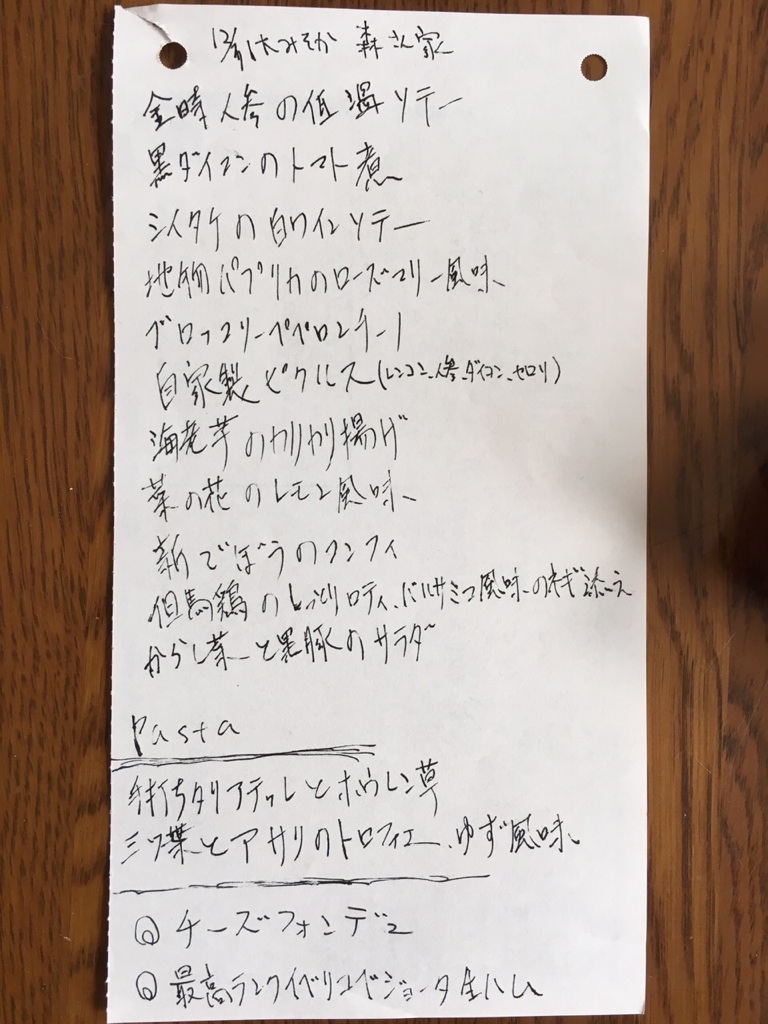 12/31大みそか 森さん家
金時人参の低温ソテー
黒ダイコンのトマト煮
シイタケの白ワインソテー
地物パプリカのローズマリー風味
ブロッコリーペペロンチーノ
自家製ピクルス(レンコン、人参、ダイコン、セロリ)
海老芋のカリカリ揚げ
菜の花のレモン風味
新ごぼうのコンフィ
但馬鶏のしっとりロティ、バルサミコ風味のネギ添え
からし菜と黒豚のサラダ
Pasta
手打ちタリアテッレとホウレン草
三ツ葉とアサリのトロフィエ、ゆず風味
◎チーズフォンデュ
◎最高ランクイベリコベジョータ生ハム